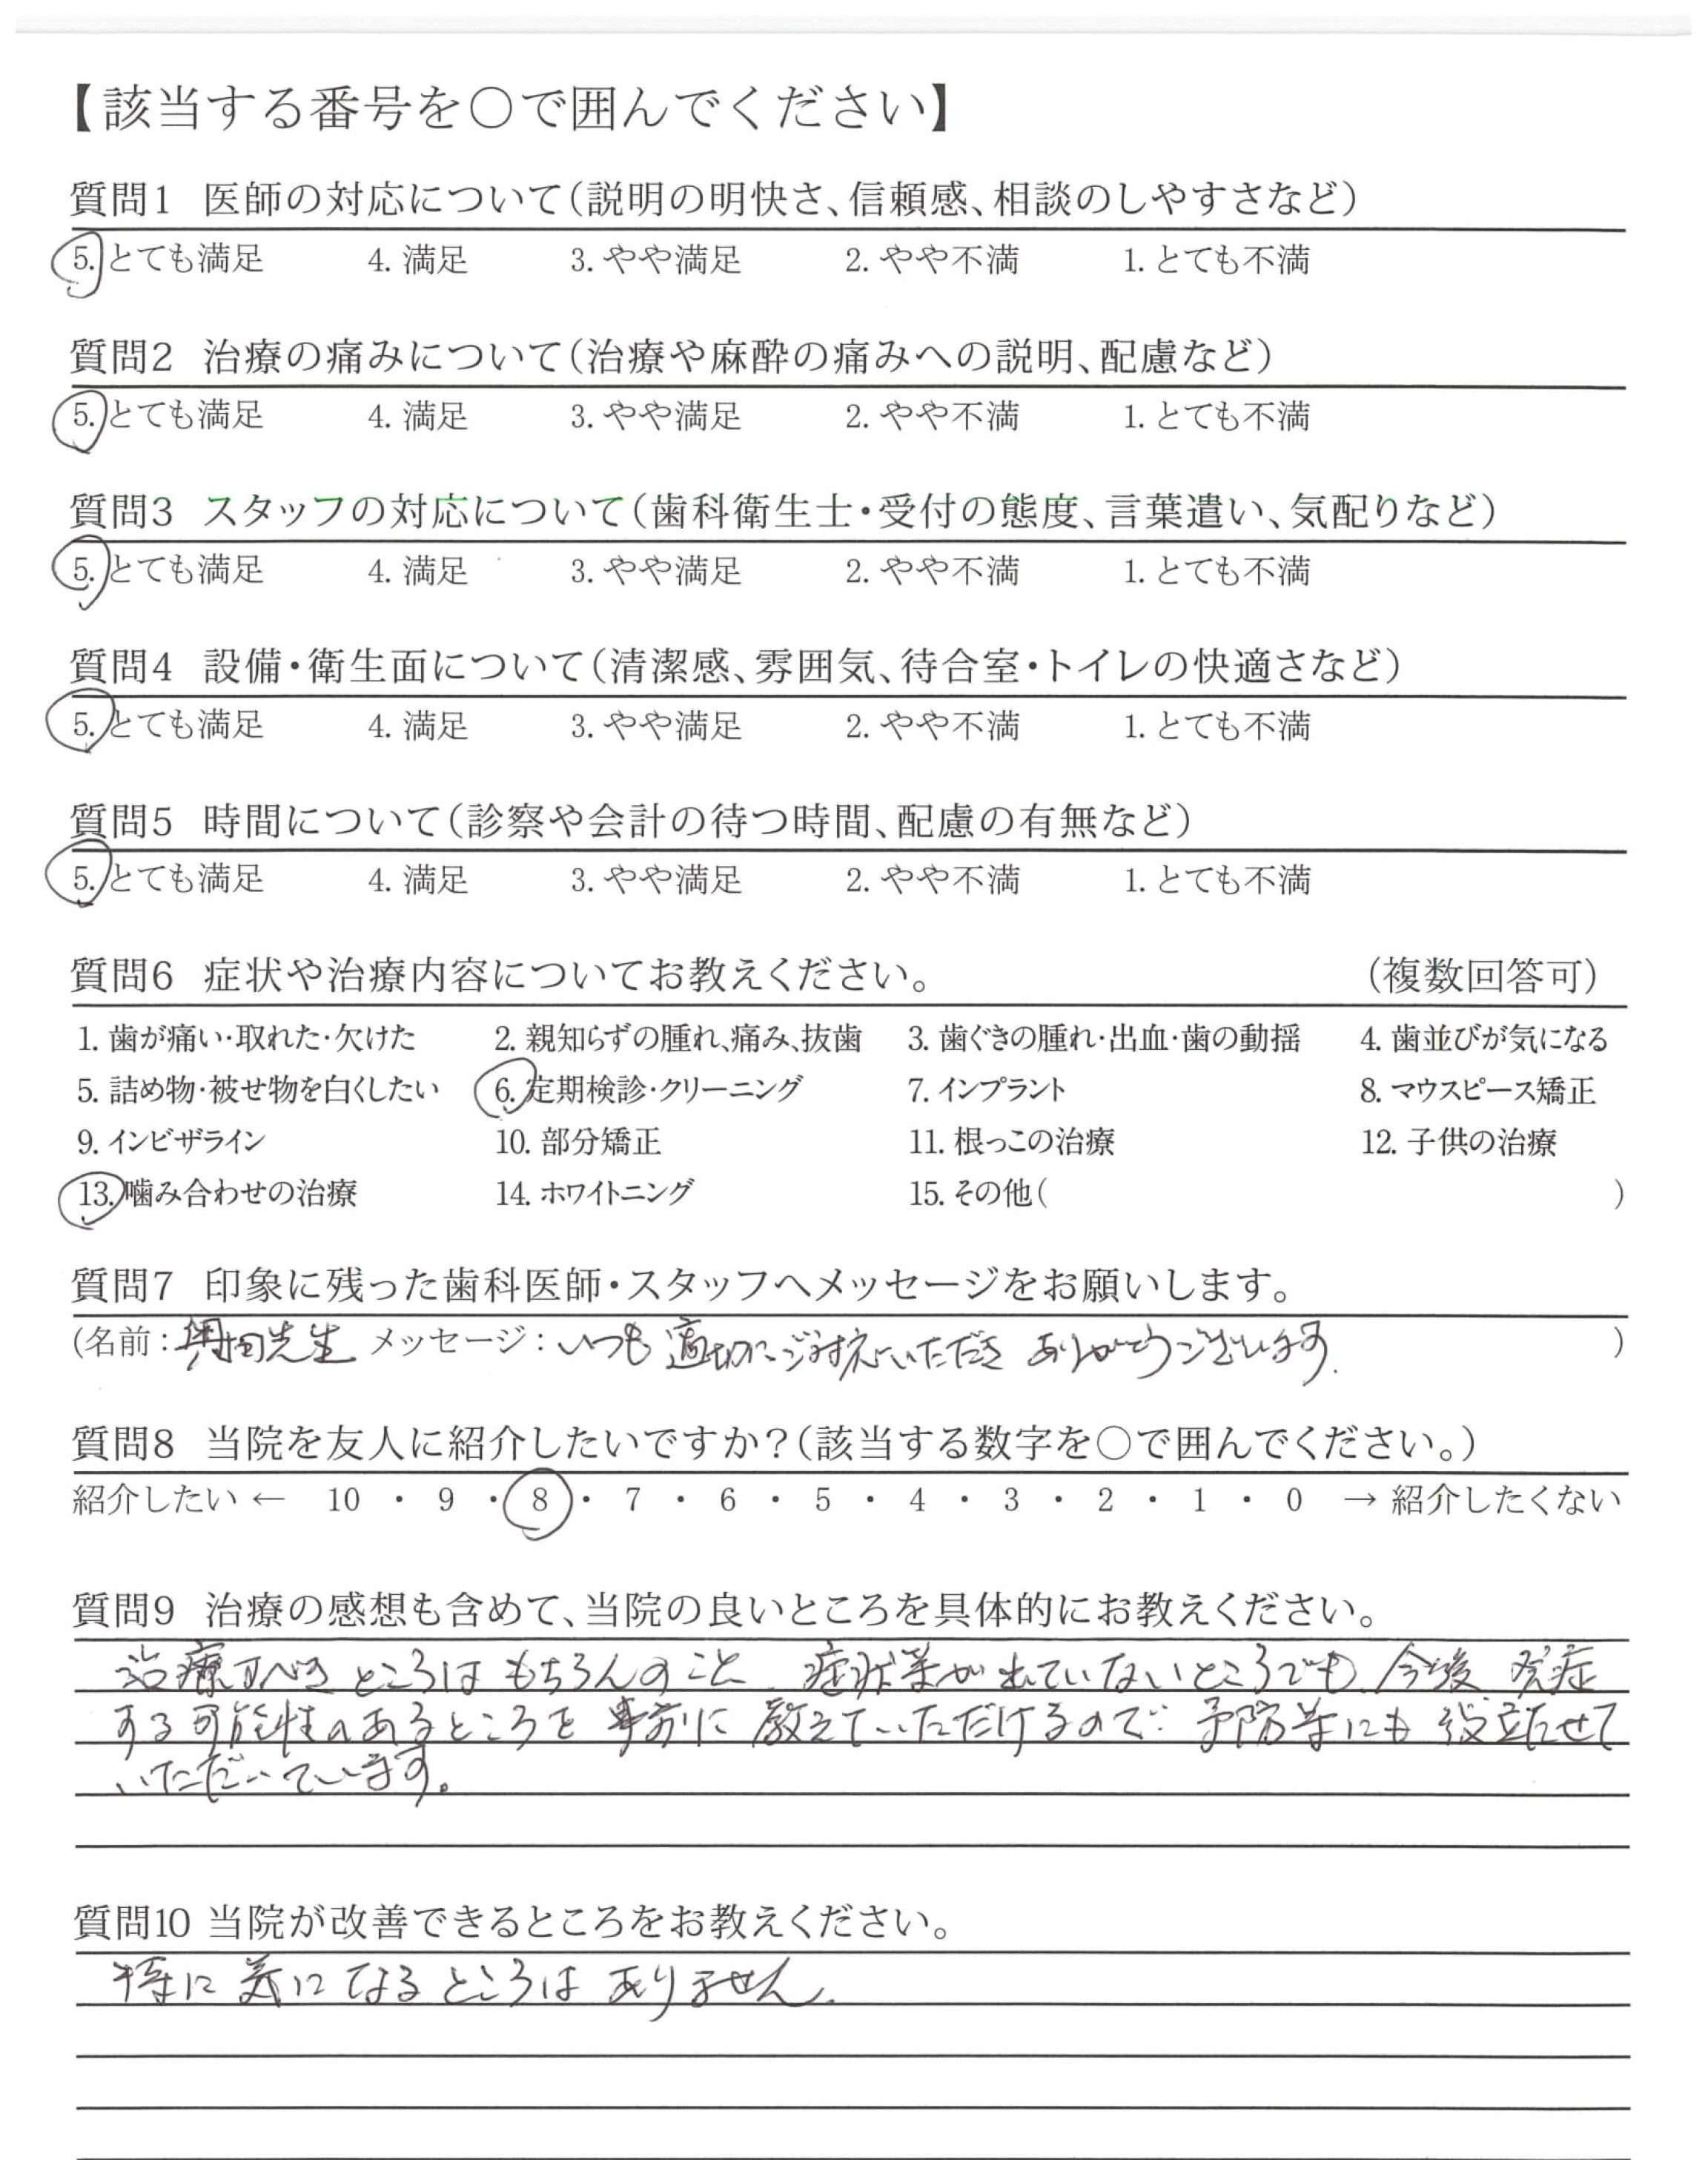 【該当する番号を○で囲んでください】
質問1 医師の対応について(説明の明快さ、信頼感、相談のしやすさなど)
5. とても満足 4. 満足 3. やや満足 2. やや不満 1. とても不満
質問2 治療の痛みについて(治療や麻酔の痛みへの説明、配慮など)
5. とても満足 4. 満足 3. やや満足 2. やや不満 1. とても不満
質問3 スタッフの対応について(歯科衛生士・受付の態度、言葉遣い、気配りなど)
5. とても満足 4. 満足 3. やや満足 2. やや不満 1. とても不満
質問4 設備・衛生面について(清潔感、雰囲気、待合室・トイレの快適さなど)
5. とても満足 4. 満足 3. やや満足 2. やや不満 1. とても不満
質問5 時間について(診察や会計の待つ時間、配慮の有無など)
5. とても満足 4. 満足 3. やや満足 2. やや不満 1. とても不満
質問6 症状や治療内容についてお教えください。 (複数回答可)
1. 歯が痛い・取れた・欠けた 2. 親知らずの腫れ、痛み、抜歯 3. 歯ぐきの腫れ・出血・歯の動揺 4. 歯並びが気になる
5. 詰め物・被せ物を白くしたい 6. 定期検診・クリーニング 7. インプラント 8. マウスピース矯正
9. インビザライン 10. 部分矯正 11. 根っこの治療 12. 子供の治療
13. 噛み合わせの治療 14. ホワイトニング 15. その他( )
質問7 印象に残った歯科医師・スタッフへメッセージをお願いします。
(名前: 先生 メッセージ: いつも適切にご対応いただきありがとうございます. )
質問8 当院を友人に紹介したいですか?(該当する数字を○で囲んでください。)
紹介したい ← 10 ・ 9 ・ 8 ・ 7 ・ 6 ・ 5 ・ 4 ・ 3 ・ 2 ・ 1 ・ 0 → 紹介したくない
質問9 治療の感想も含めて、当院の良いところを具体的にお教えください。
治療すべきところはもちろんのこと、症状等が出ていないところでも、今後発症
する可能性のあるところを事前に教えていただけるので、予防等にも役立たせて
いただいています。
質問10 当院が改善できるところをお教えください。
特に気になるところはありません.